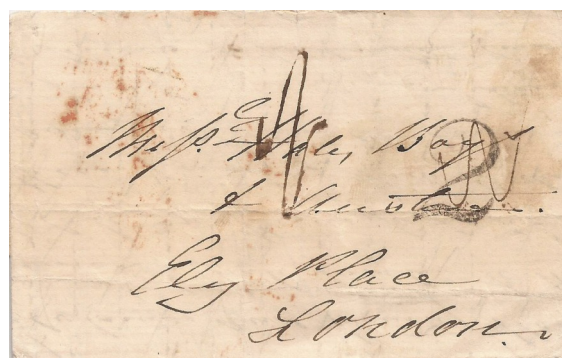 Messrs. Hale, Boys
& Austen.
Ely Place
London.
2